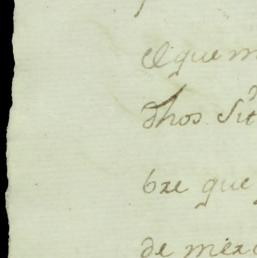 el que m
dhos. Sit
bre que
de mexi